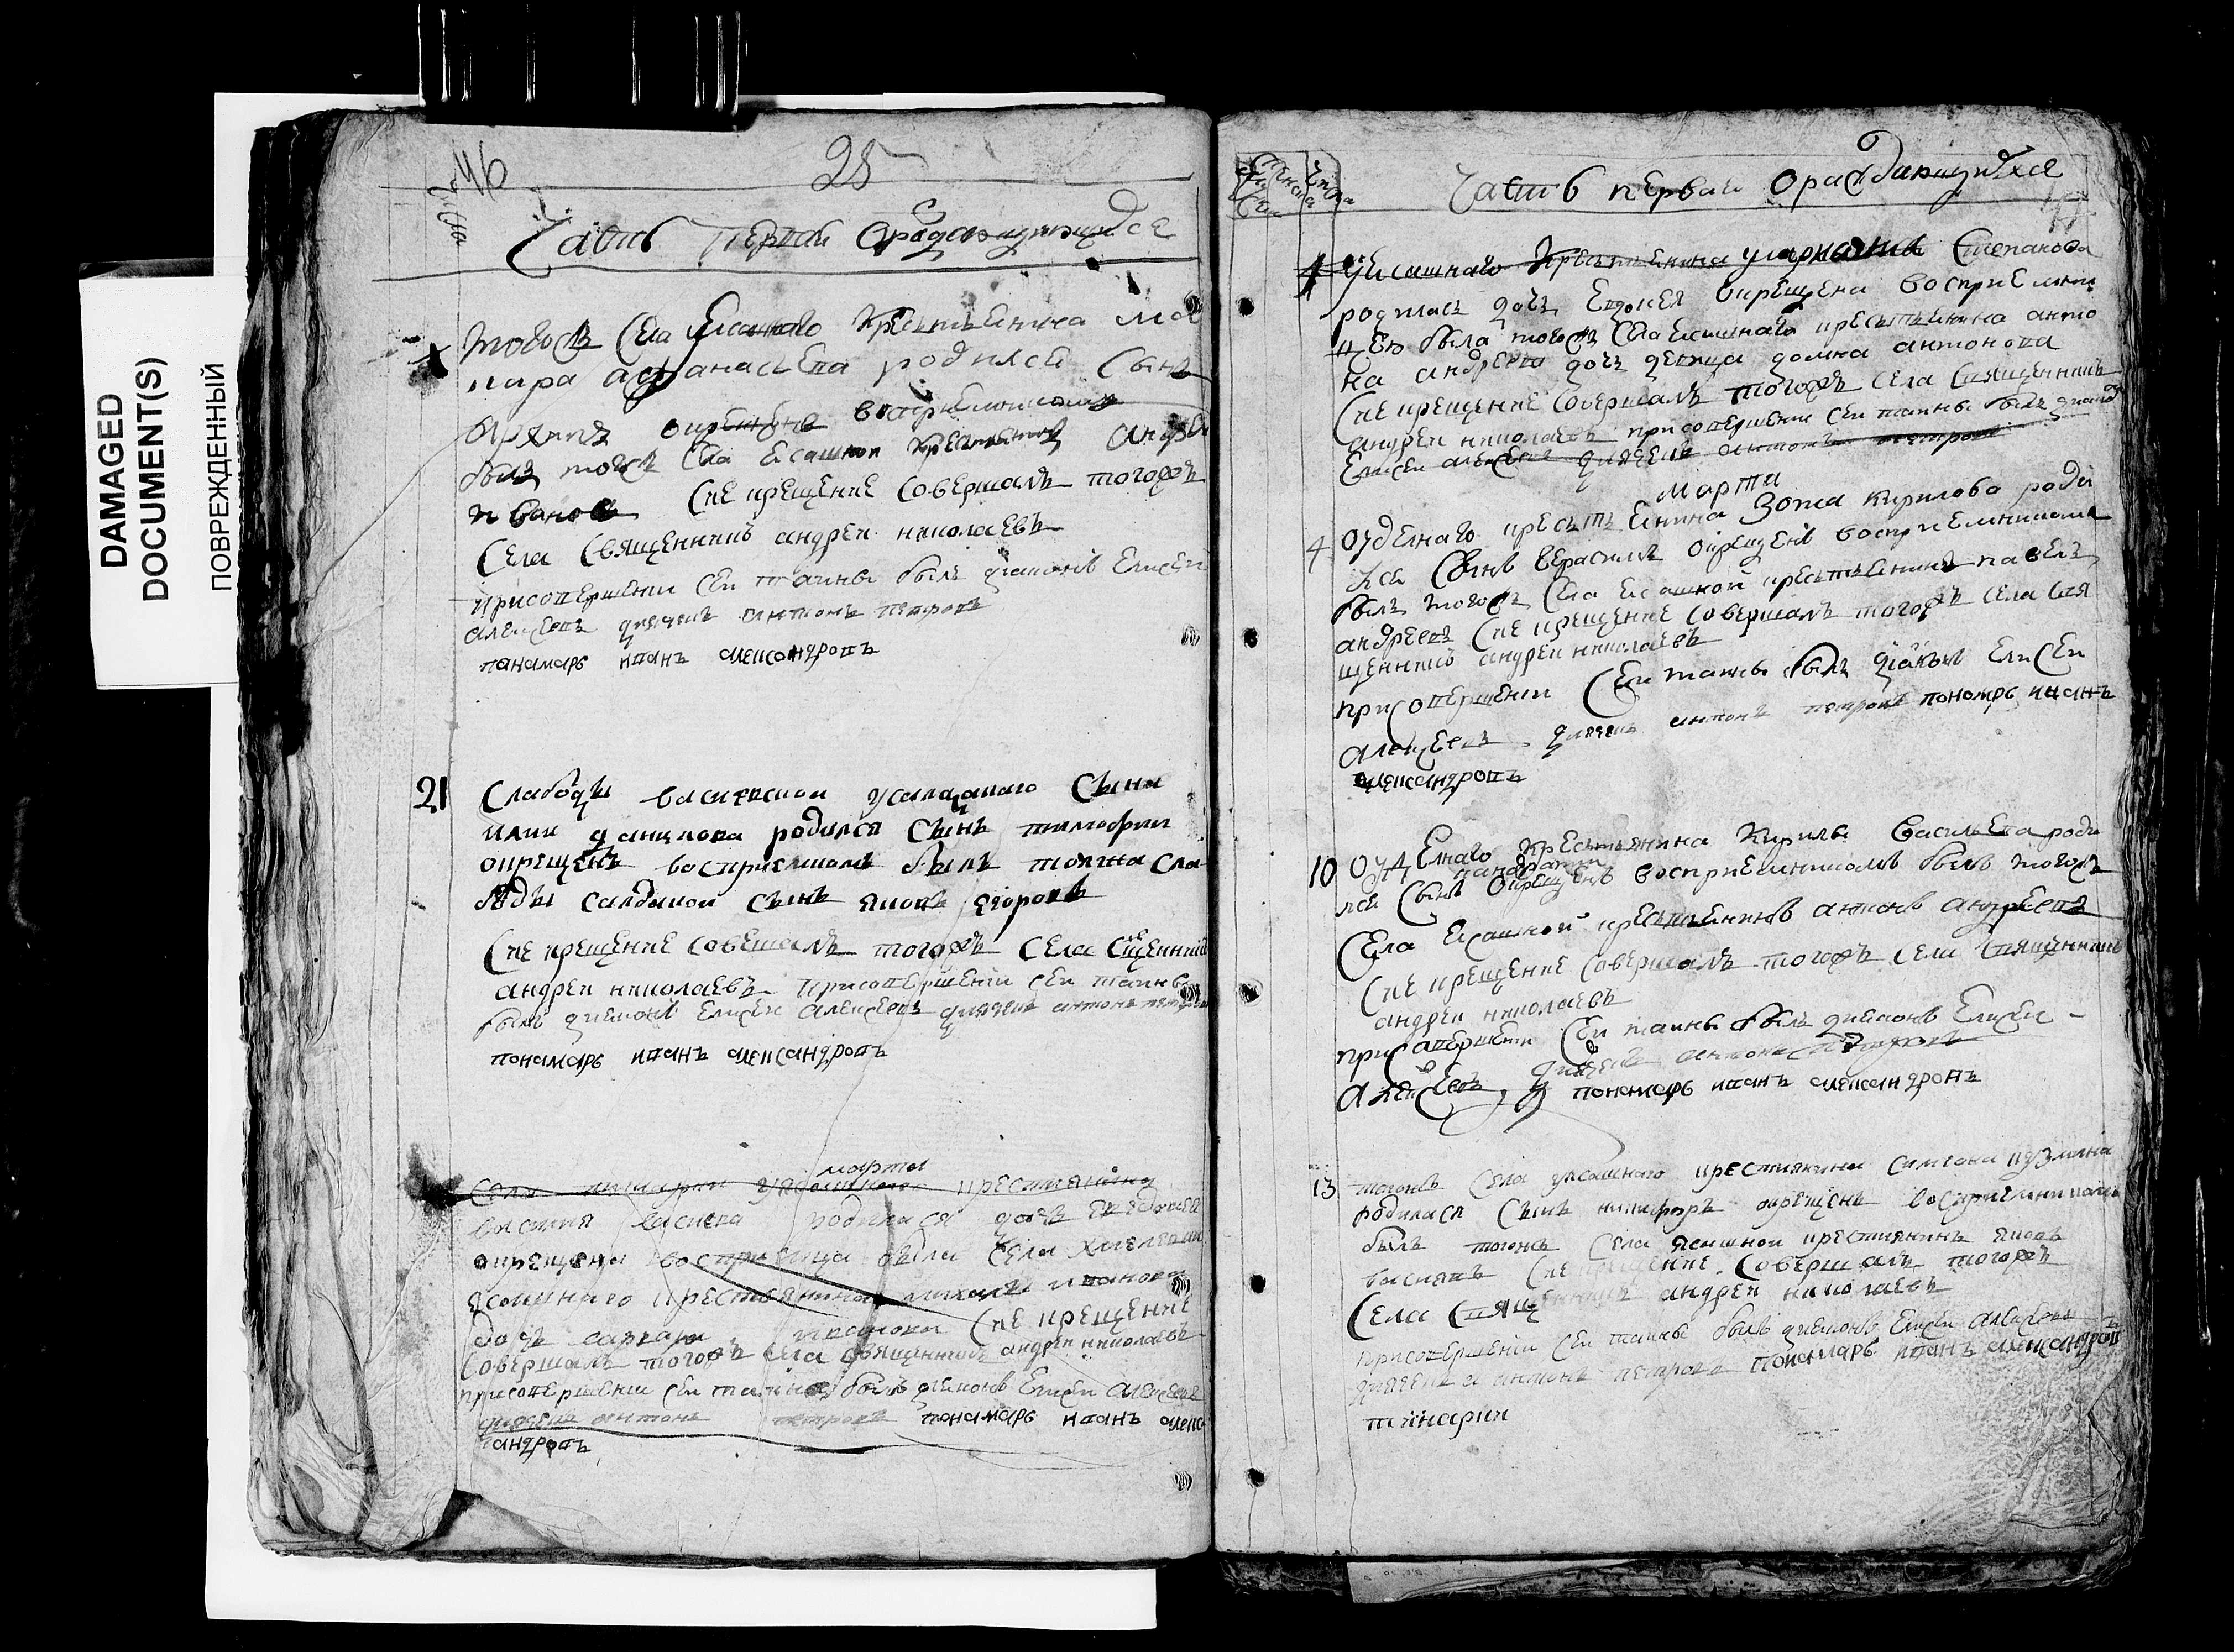 DAMAGED
DOCUMENT(S)
ПОВРЕЖДЕННЫЙ
46
25
числа
Часть первая ораждающихся
тогожъ села ясашнаго крестьянина ма
кара афанасьева родился сынъ
архипъ окрещенъ восприемникомъ
былъ тогожъ села ясашной крестьянинъ андрей
ивановъ Сие крещение совершалъ тогожъ
села священникъ андреи николаевъ
присовершении сеи таины былъ диаконъ Елисеи
алексеевъ дьячекъ антонъ петровъ
панамарь иванъ александровъ
21
слабоды васильской усалдацкаго сына
данилова родился сынъ тимофеи
окрещенъ восприемникомъ былъ тояжа сла
боды салдацкой сынъ яковъ егоровъ
Сие крещение совешалъ тогожъ села сщенникъ
андреи николаевъ присовершении сеи таины
былъ диаконъ Елисеи алексеевъ дьячекъ антонъ петровъ
понамарь иванъ александровъ
марта
села крестьянина
василия родилася дочь евдокея
окрещена восприемница была села
ясашнаго крестьянина ивanова
дочь ивanова Сие крещение
совершалъ тогожъ села священникъ андреи николаевъ
присовершении сеи таины былъ диаконъ Елисеи алексеевъ
дьячекъ антонъ петровъ понамарь иванъ алекс
андровъ
числа
Часть первая ораждающихся
47
1 уясашнаго крестьянина степанова
родилась дочь Евдокея окрещена восприемни
цею была тогожъ села ясашнаго крестьянина анто
на андреева дочь девица домна антонова
Сие крещение совершалъ тогожъ села священникъ
андреи николаевъ присовершении сеи таины былъ диаконъ
Елисеи алексеевъ дьячекъ антонъ петровъ
марта
4 оудельнаго крестьянина Зота кирилова роди
лся сынъ герасимъ окрещенъ восприемникомъ
былъ тогожъ села ясашной крестьянинъ павелъ
андреевъ Сие крещение совершалъ тогожъ села свя
щенникъ андреи николаевъ
присовершении сеи таины былъ диаконъ Елисеи
алексеевъ дьячекъ антонъ петровъ пономарь иванъ
александровъ
10 оудельнаго крестьянина Кирилы васильева роди
кандратии
лся сынъ окрещенъ восприемникомъ былъ тогожъ
села ясашной крестьянинъ антонъ андреевъ
Сие крещение совершалъ тогожъ села священникъ
андреи николаевъ
присовершении сеи таины былъ диаконъ Елисеи
алексеевъ дьячекъ антонъ петровъ
понамарь иванъ александровъ
13 тогожъ села уясашнаго крестьянина симиона кузмина
родилася сынъ никифоръ окрещенъ восприемникомъ
былъ тогожъ села ясашной крестиянинъ яковъ
Сие крещение совершалъ тогожъ
села священникъ андреи николаевъ
присовершении сеи таины былъ диаконъ Елисеи алексеевъ
дьячекъ антонъ петровъ понамарь иванъ александровъ